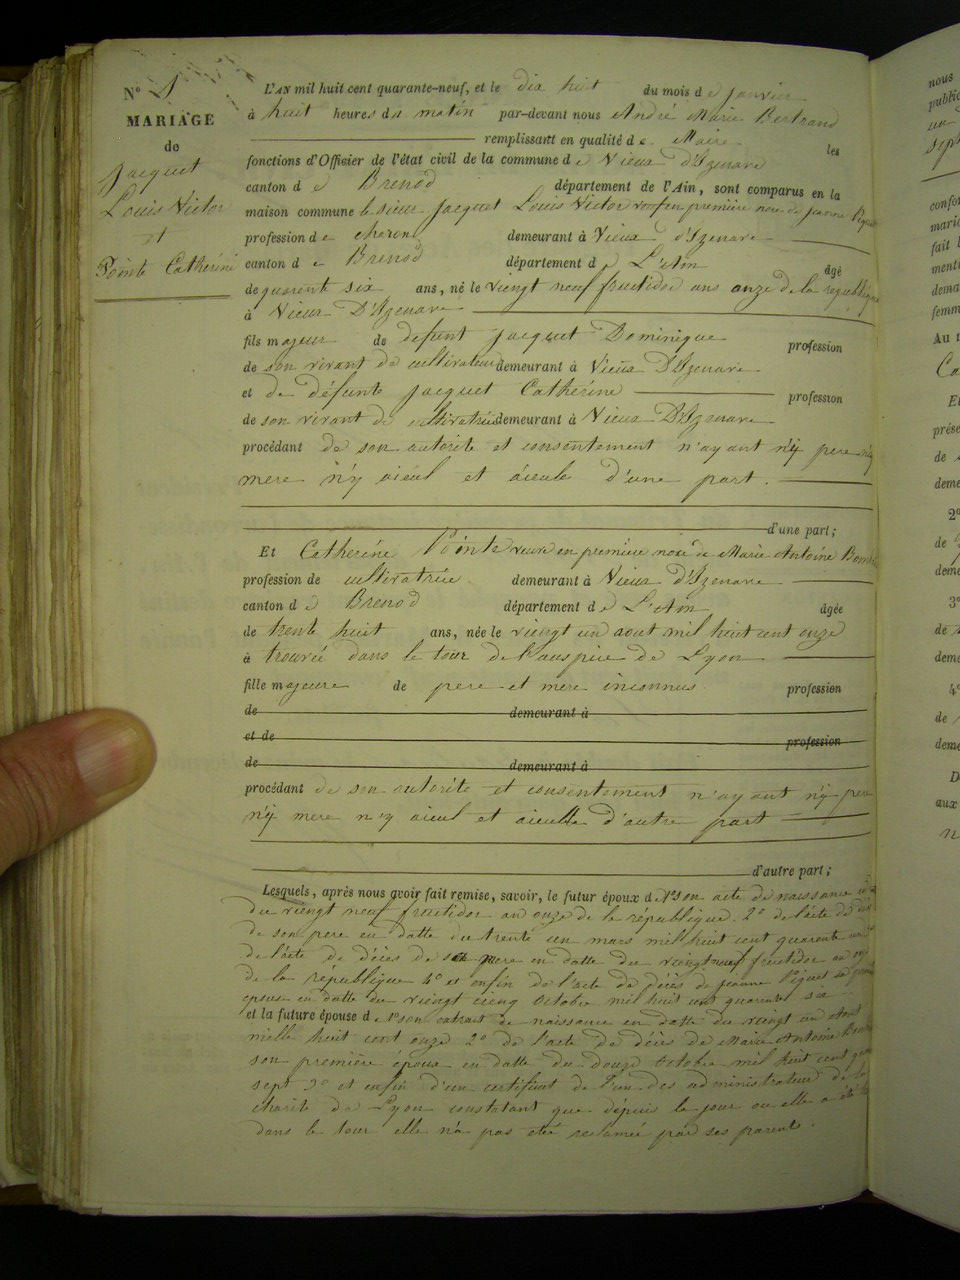 N° 1
MARIAGE
de
Jacquet
Louis Victor
et
Pointe Catherine
L'AN mil huit cent quarante-neuf, et le dix huit du mois de janvier
à huit heures du matin par-devant nous André Marie Bertrand
remplissant en qualité de Maire les
fonctions d'Officier de l'état civil de la commune de Vieux d'Izenave
canton de Brenod département de l'Ain, sont comparus en la
maison commune le sieur Jacquet Louis Victor veuf en première noce de Jeanne Piquet
profession de charon demeurant à Vieux d'Izenave
canton de Brenod département de L'Ain âgé
de quarente six ans, né le viengt neuf fructidor ans onze de la republique
à Vieux D'Izenave
fils majeur de defunt Jacquet Dominique profession
de son vivant de cultivateur demeurant à Vieux D'Izenave
et de défunte Jacquet Catherine profession
de son vivant de cultivatrice demeurant à Vieux D'Izenave
procédant de son autorité et consentement n'ayant n'y pere n'y
mere n'y aieul et aieule d'une part.
d'une part;
Et Catherine Pointe veuve en première noce de Marie Antoine
profession de cultivatrice demeurant à Vieux d'Izenave
canton de Brenod département de L'Ain âgée
de trente huit ans, née le viengt un aout mil huit cent onze
à trouvée dans le tour de l'auspice de Lyon
fille majeure de pere et mere inconnus profession
de demeurant à
et de profession
de demeurant à
procédant de son autorité et consentement n'ayant n'y pere
n'y mere n'y aieul et aieulle d'autre part
d'autre part;
Lesquels, après nous avoir fait remise, savoir, le futur époux de 1° son acte de naissance
du viengt neuf fructidor an onze de la république. 2° de l'acte de
de son pere en datte du trente un mars mil huit cent quarente
de l'acte de décès de sa mere en datte du viengt neuf fructidor an
de la république 4° et enfin de l'acte de décès de Jeanne Piquet sa
epouse en datte du viengt cienq Octobre mil huit cent quarente six
et la future épouse de 1° son extrait de naissance en datte du viengt un Aout
mille huit cent onze 2° de l'acte de décès de Marie Antoine
son première époux en datte du douze Octobre mil huit cent
sept 3° et enfin d'un certificat de l'un des administrateur de la
charité de Lyon constatant que dépuis le jour ou elle a été
dans le tour elle n'a pas eté réclamée par ses parents.
nous
public
un
sept
confor
maric
fait l
menti
dema
femm
Au n
Ca
Et
prése
de
deme
2°
de
deme
3°
de
deme
4°
de
deme
D
aux